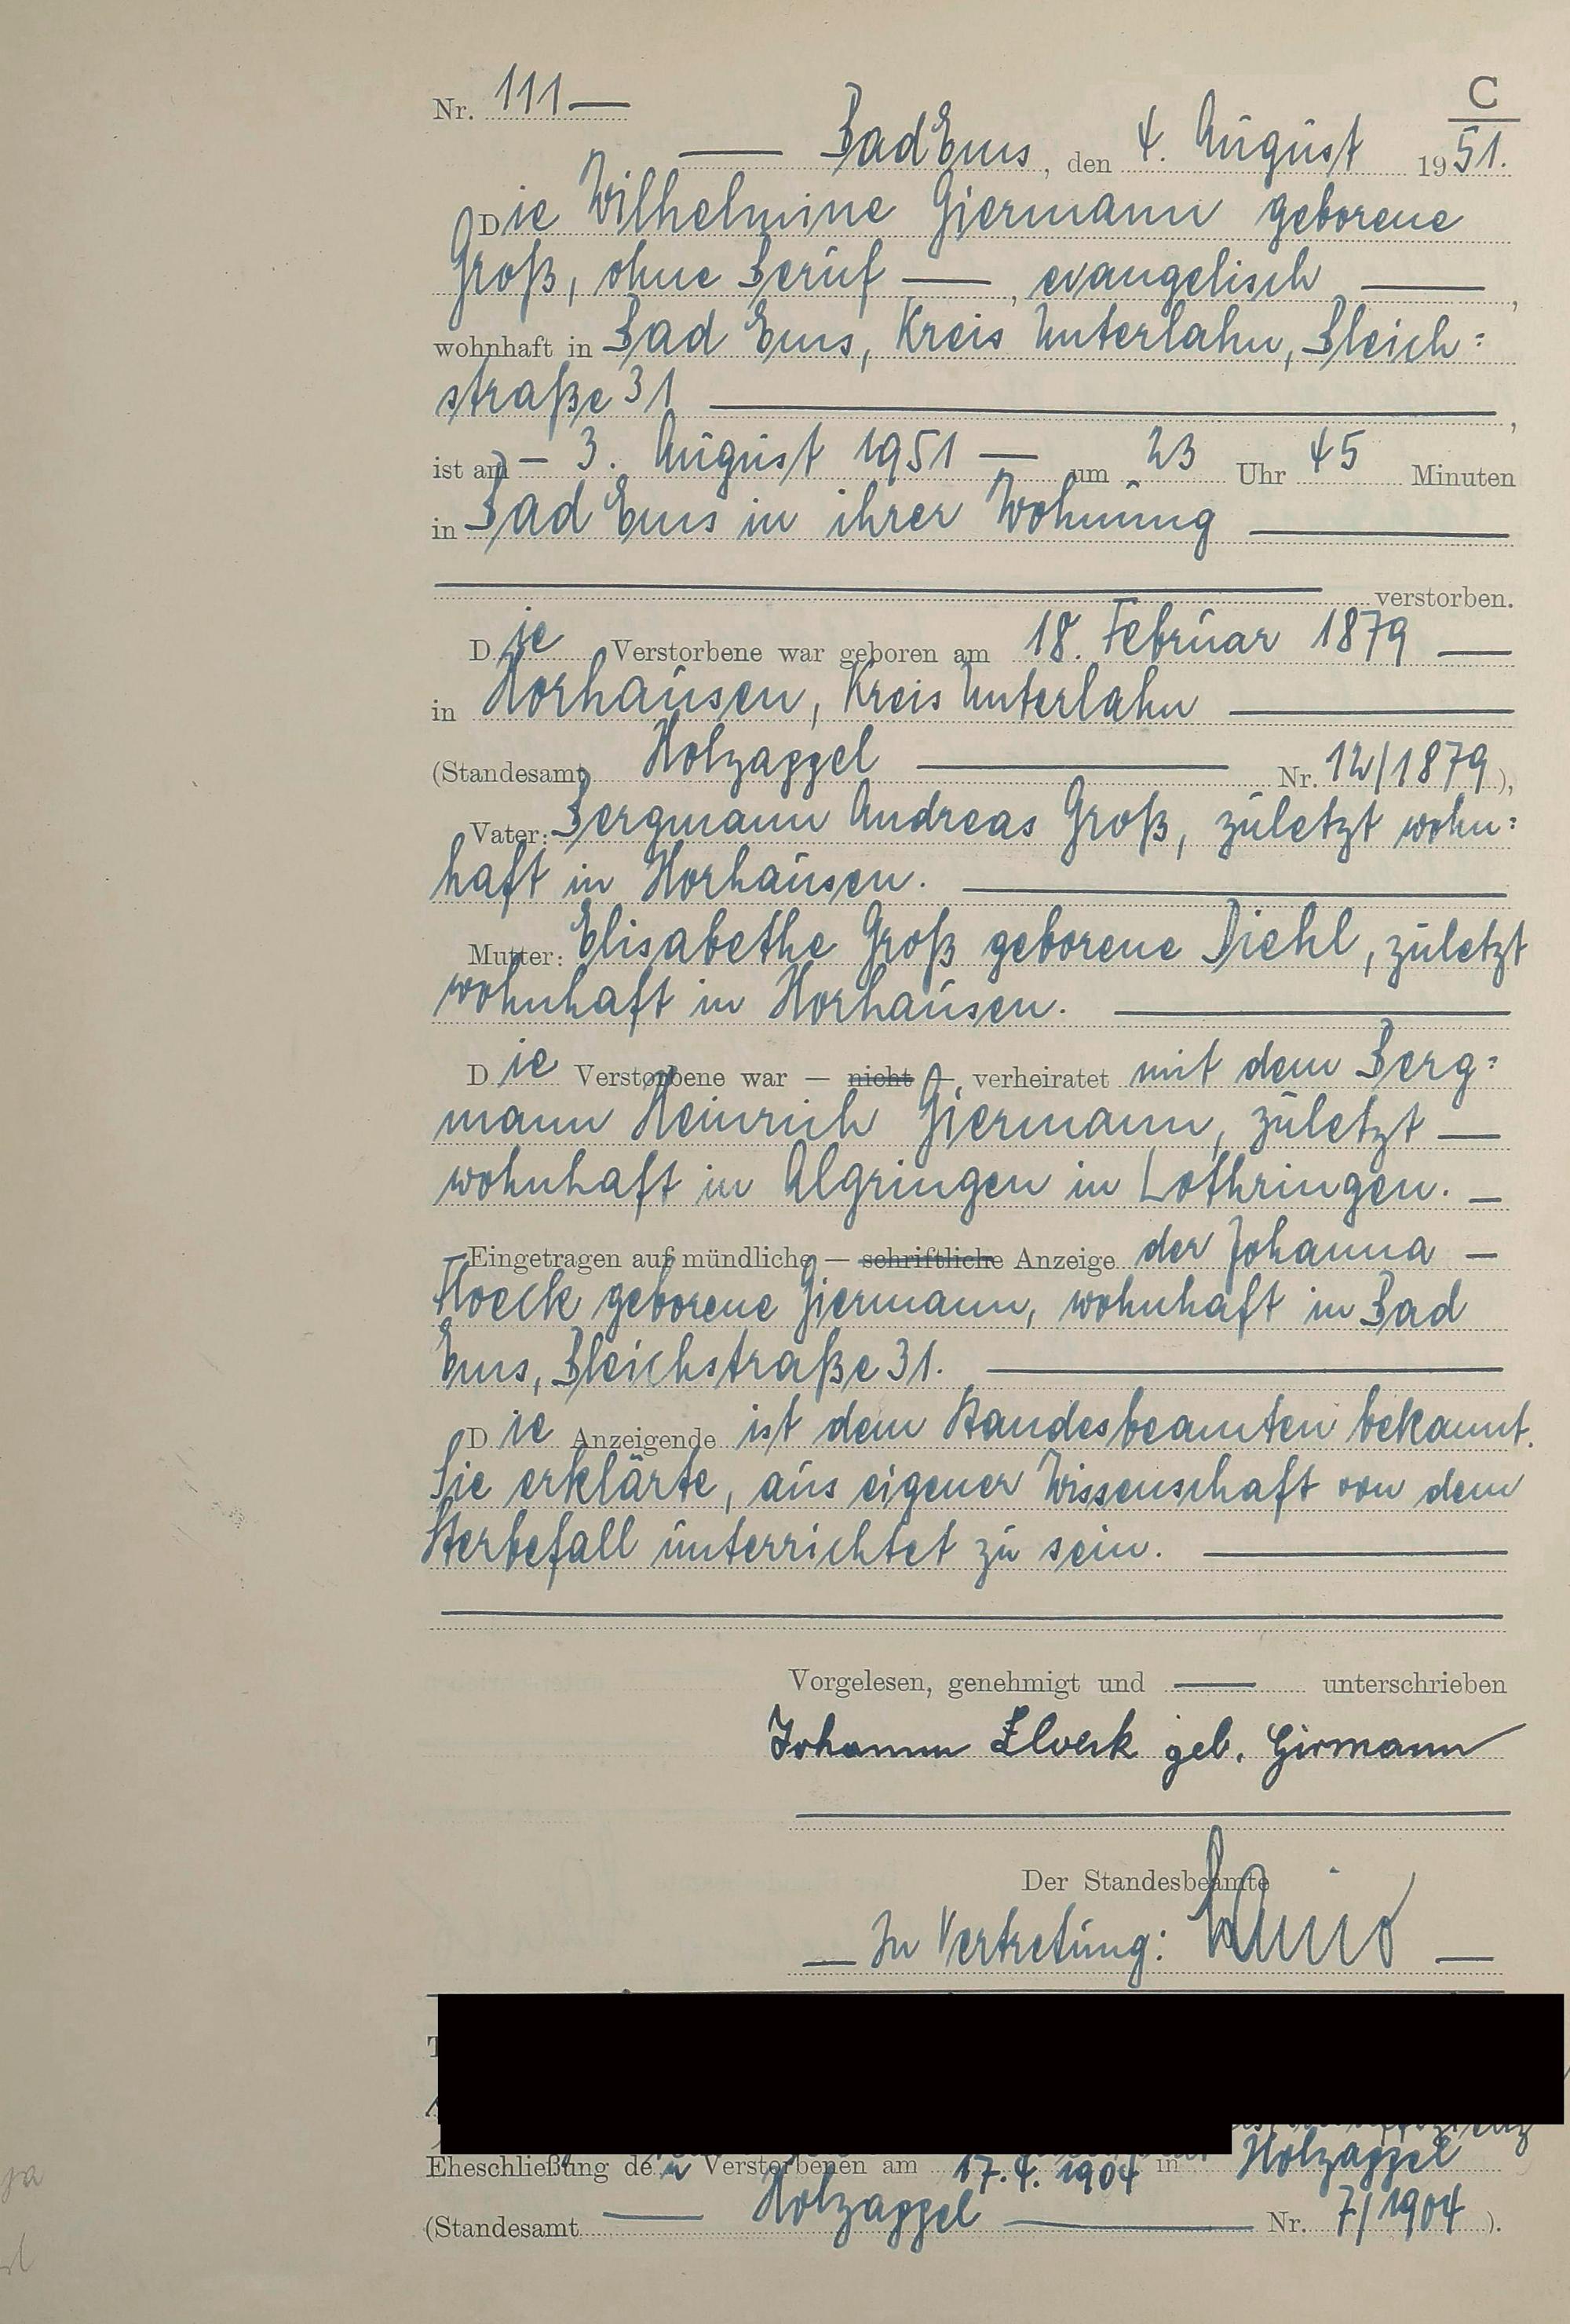 C
Nr. 111 —
— Bad Ems, den 4. August 1951.
Die Wilhelmine Giermann geborene
Groß, ohne Beruf —, evangelisch —,
wohnhaft in Bad Ems, Kreis Unterlahn, Bleich=
straße 31 —,
ist am – 3. August 1951 — um 23 Uhr 45 Minuten
in Bad Ems in ihrer Wohnung —
— verstorben.
Die Verstorbene war geboren am 18. Februar 1879 —
in Horhausen, Kreis Unterlahn —
(Standesamt Holzappel — Nr. 12/1879),
Vater: Bergmann Andreas Groß, zuletzt wohn=
haft in Horhausen. —
Mutter: Elisabethe Groß geborene Diehl, zuletzt
wohnhaft in Horhausen. —
Die Verstorbene war — nicht —, verheiratet mit dem Berg=
mann Heinrich Giermann, zuletzt —
wohnhaft in Algringen in Lothringen. —
Eingetragen auf mündliche — schriftliche Anzeige der Johanna —
geborene Giermann, wohnhaft in Bad
Ems, Bleichstraße 31. —
Die Anzeigende ist dem Standesbeamten bekannt.
Sie erklärte, aus eigener Wissenschaft von dem
Sterbefall unterrichtet zu sein. —
Vorgelesen, genehmigt und — unterschrieben
geb. Girmann
Der Standesbeamte
— In Vertretung: —
Eheschließung der Verstorbenen am 17.4.1904 in Holzappel
(Standesamt — Holzappel — Nr. 7/1904).